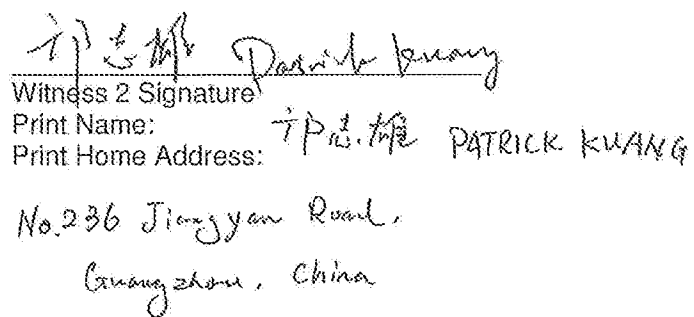 志雄 Patrick Kuang
Witness 2 Signature
Print Name: 志雄 PATRICK KUANG
Print Home Address:
No.236 Jiangyan Road,
Guangzhou, China